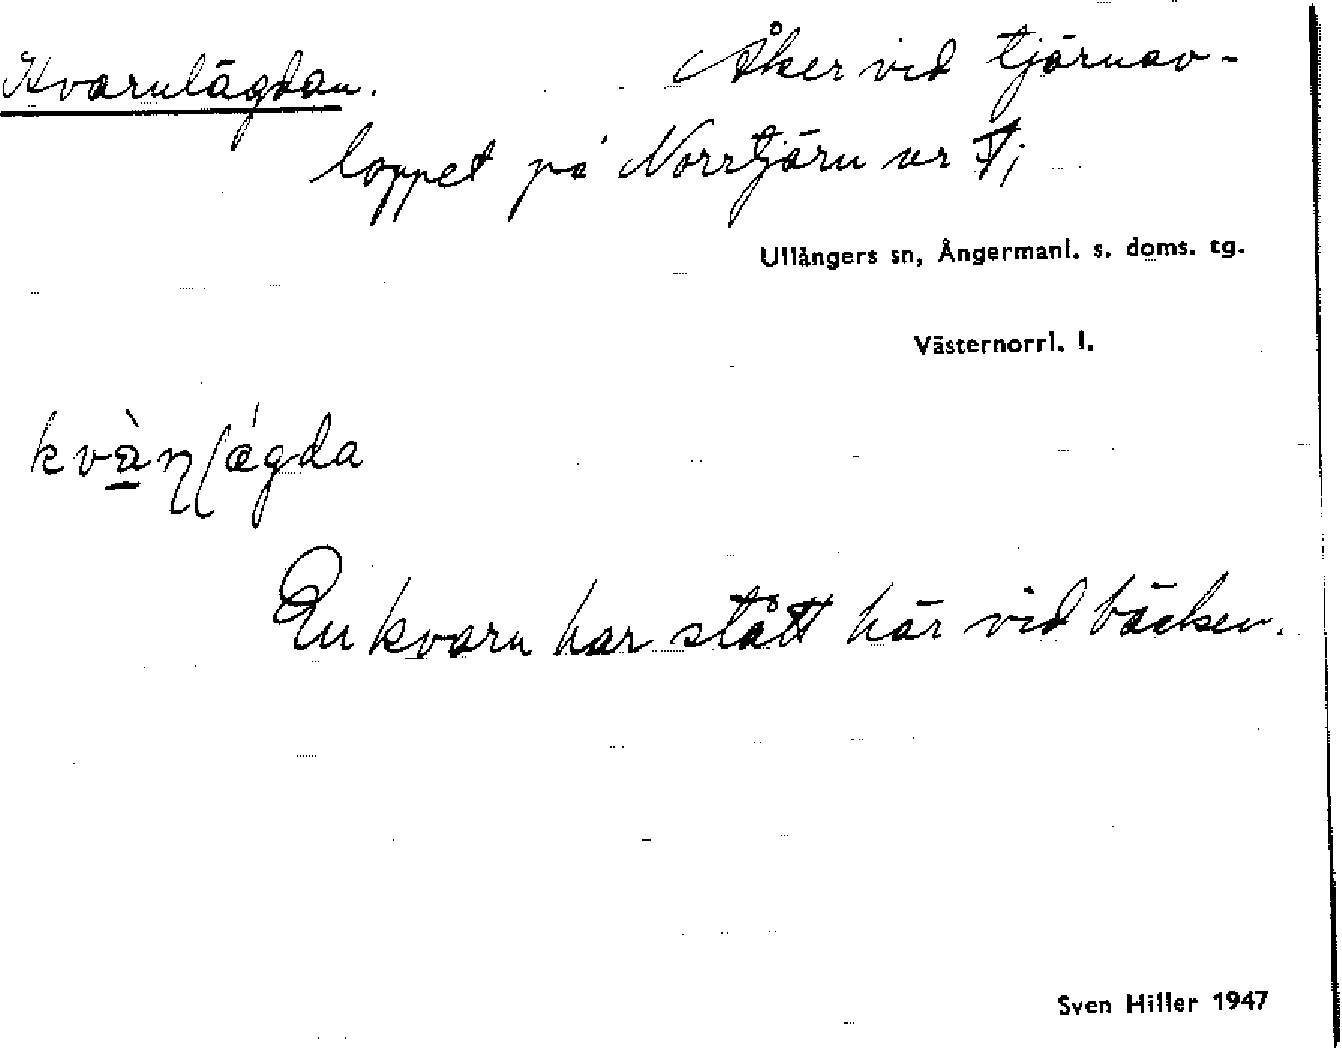 Kvarnlägdan. Åker vid tjärnav-
loppet på Norrtjärn nr
Ullångers sn, Ångermanl. s. doms. tg.
Västernorrl. l.
En kvarn har stått här vid bäcken.
Sven Hiller 1947